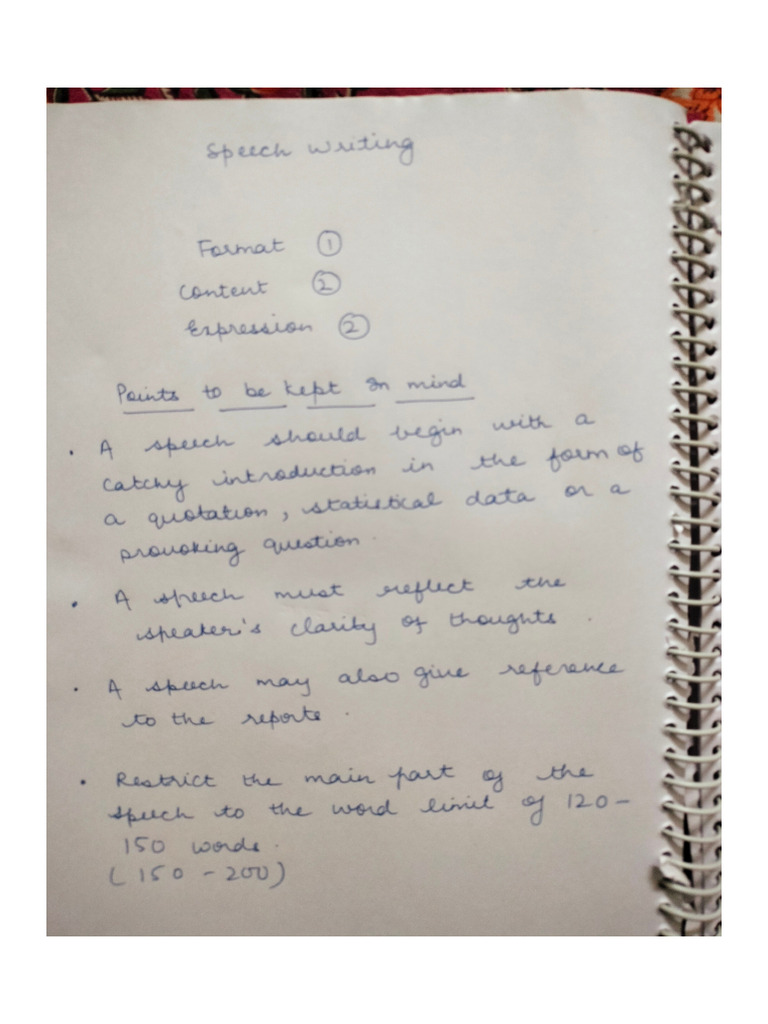 Speech Writing
Format ①
Content ②
Expression ②
Points to be kept In mind
. A speech should begin with a
catchy introduction in the form of
a quotation, statistical data or a
provoking question.
. A speech must reflect the
speaker's clarity of thoughts.
. A speech may also give reference
to the reports.
. Restrict the main part of the
speech to the word limit of 120-
150 words.
(150-200)